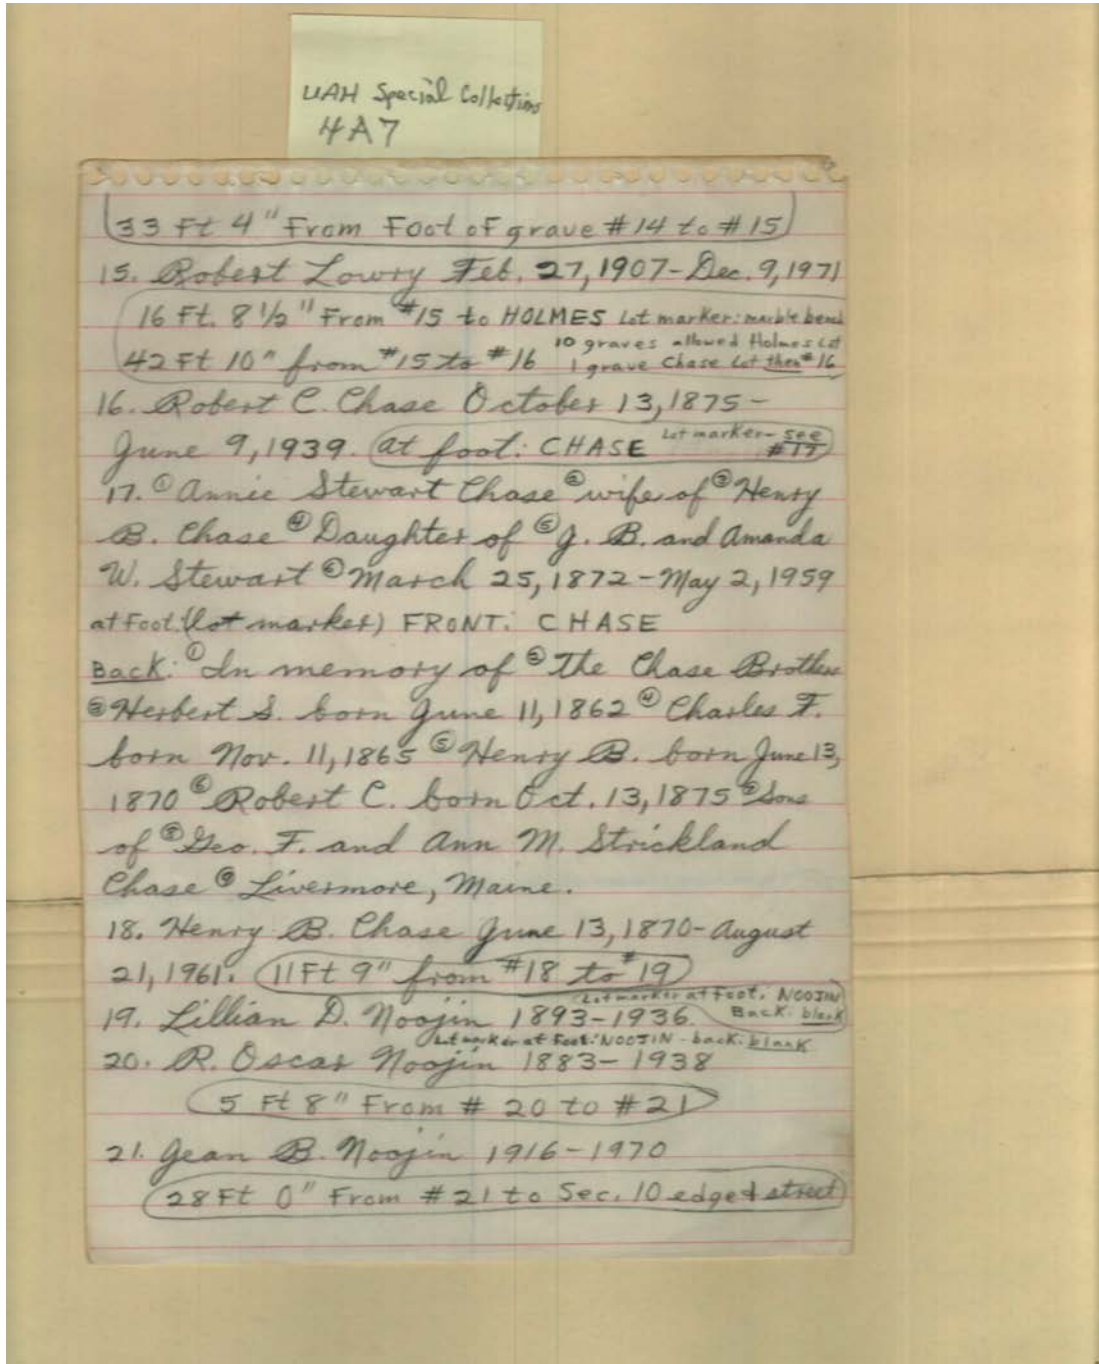 UAH Special Collections
4A7
33 Ft 4" From Foot of grave #14 to #15
15. Robert Lowry Feb. 27, 1907-Dec. 9, 1971
16 Ft. 8 1/2" From #15 to HOLMES Lot marker: marble bench
10 graves allowed Holmes Lot
42 Ft 10" from #15 to #16 1 grave Chase Lot then #16
16. Robert C. Chase October 13, 1875-
June 9, 1939. at foot: CHASE Lot marker- see
#17
17. ① Annie Stewart Chase ② wife of ③ Henry
B. Chase ④ Daughter of ⑤ J. B. and Amanda
W. Stewart ⑥ March 25, 1872-May 2, 1959
at Foot (lot marker) FRONT: CHASE
Back: ① In memory of ② The Chase Brothers
③ Herbert S. born June 11, 1862 ④ Charles F.
born Nov. 11, 1865 ⑤ Henry B. born June 13,
1870 ⑥ Robert C. born Oct. 13, 1875 ⑦ Sons
of ⑧ Geo. F. and Ann M. Strickland
Chase ⑨ Livermore, Maine.
18. Henry B. Chase June 13, 1870-August
21, 1961. 11 Ft 9" from #18 to #19
Lot marker at foot: NOOJIN
19. Lillian D. Noojin 1893-1936 Back: blank
Lot marker at Foot: NOOJIN - back: blank
20. R. Oscar Noojin 1883-1938
5 Ft 8" From # 20 to #21
21. Jean B. Noojin 1916-1970
28 Ft 0" From #21 to Sec. 10 edge of street